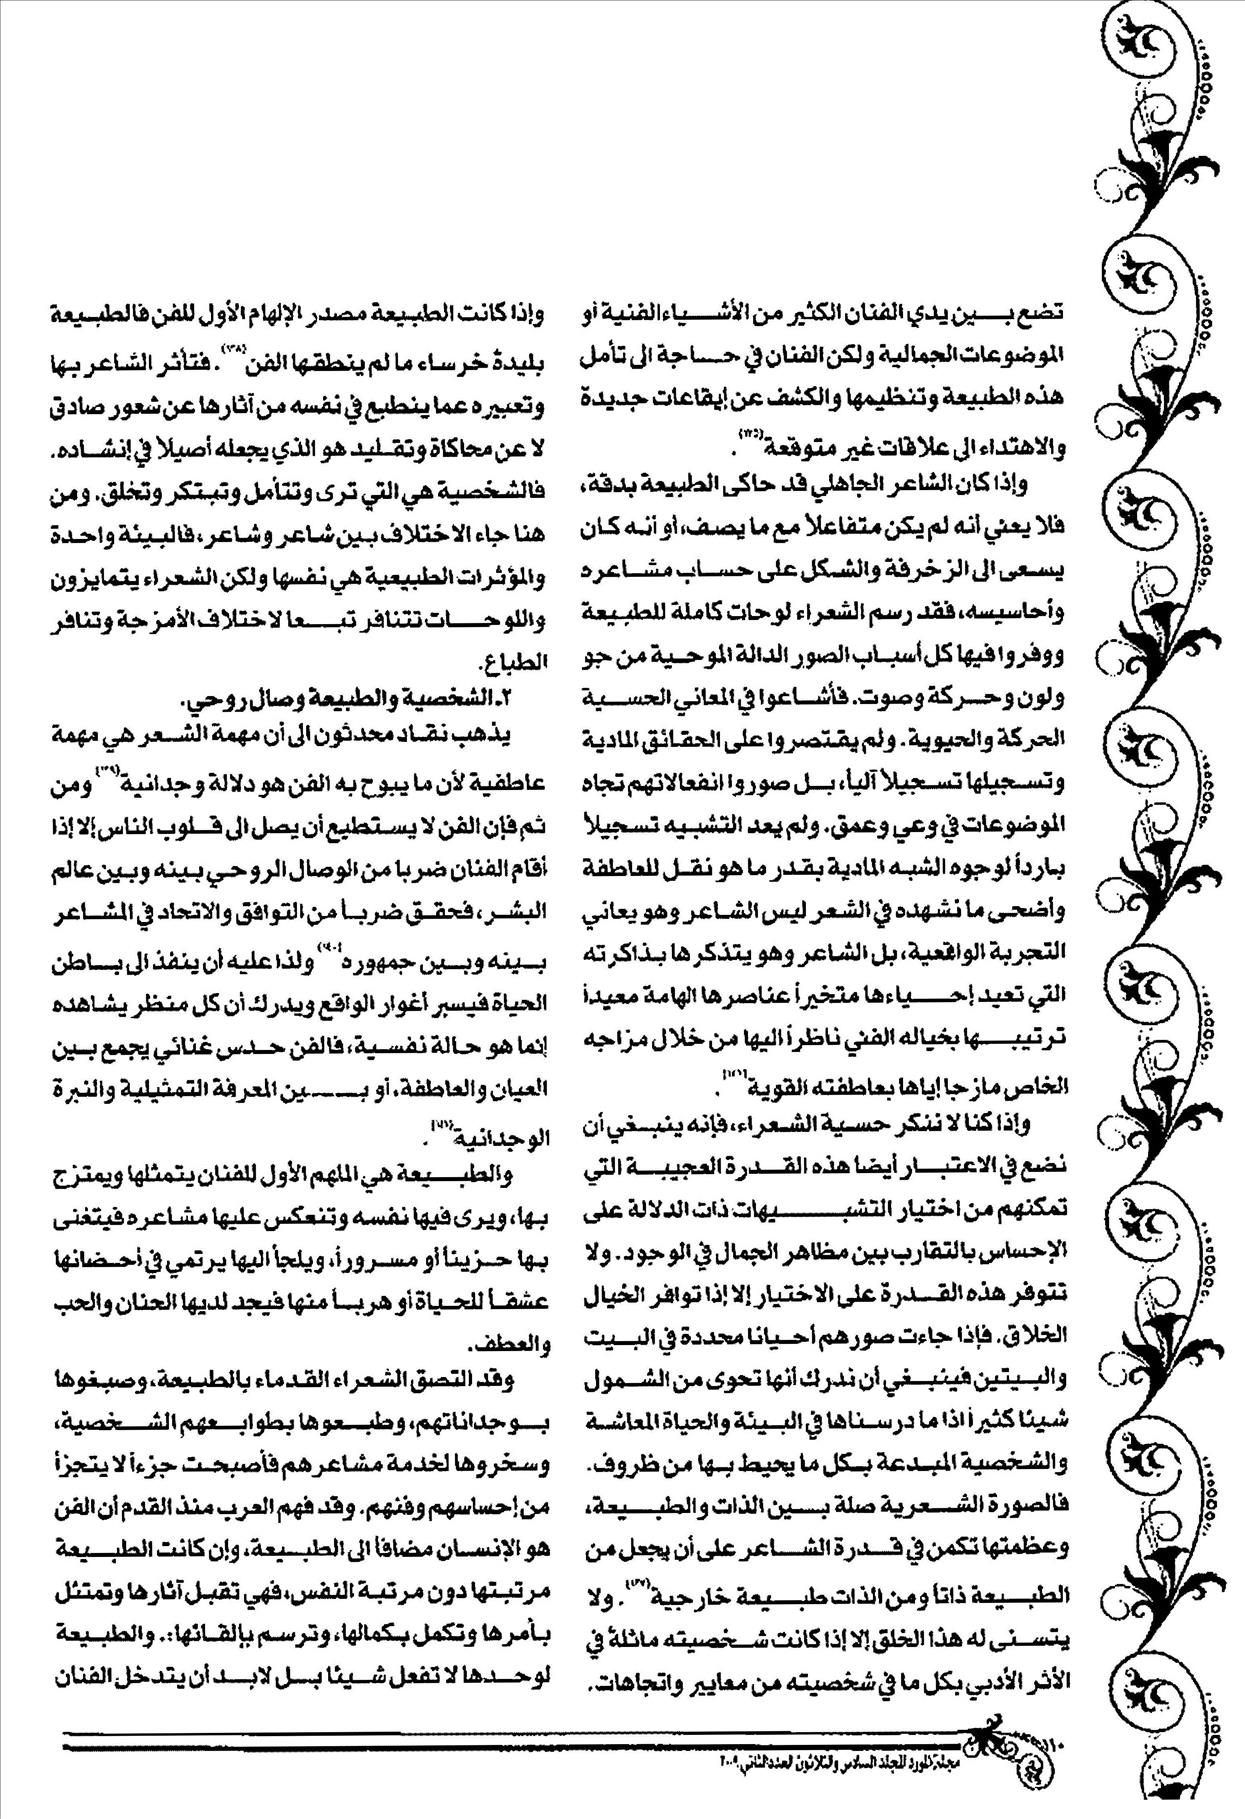 تضع بين يدي الفنان الكثير من الأشياء الفنية أو
الموضوعات الجمالية ولكن الفنان في حاجة الى تأمل
هذه الطبيعة وتنظيمها والكشف عن إيقاعات جديدة
والاهتداء الى علاقات غير متوقعة(١٣٥).
وإذا كان الشاعر الجاهلي قد حاكى الطبيعة بدقة،
فلا يعني أنه لم يكن متفاعلاً مع ما يصف، أو أنه كان
يسعى الى الزخرفة والشكل على حساب مشاعره
وأحاسيسه، فقد رسم الشعراء لوحات كاملة للطبيعة
ووفروا فيها كل أسباب الصور الدالة الموحية من جو
ولون وحركة وصوت. فأشاعوا في المعاني الحسية
الحركة والحيوية. ولم يقتصروا على الحقائق المادية
وتسجيلها تسجيلاً آلياً، بل صوروا انفعالاتهم تجاه
الموضوعات في وعي وعمق. ولم يعد التشبيه تسجيلاً
بارداً لوجوه الشبه المادية بقدر ما هو نقل للعاطفة
وأضحى ما نشهده في الشعر ليس الشاعر وهو يعاني
التجربة الواقعية، بل الشاعر وهو يتذكرها بذاكرته
التي تعيد إحياءها متخيراً عناصرها الهامة معيداً
ترتيبها بخياله الفني ناظراً اليها من خلال مزاجه
الخاص مازجا إياها بعاطفته القوية(١٣٦).
وإذا كنا لا ننكر حسية الشعراء، فإنه ينبغي أن
نضع في الاعتبار أيضا هذه القدرة العجيبة التي
تمكنهم من اختيار التشبيهات ذات الدلالة على
الإحساس بالتقارب بين مظاهر الجمال في الوجود. ولا
تتوفر هذه القدرة على الاختيار إلا إذا توافر الخيال
الخلاق. فإذا جاءت صورهم أحيانا محددة في البيت
والبيتين فينبغي أن ندرك أنها تحوى من الشمول
شيئا كثيراً اذا ما درسناها في البيئة والحياة المعاشة
والشخصية المبدعة بكل ما يحيط بها من ظروف.
فالصورة الشعرية صلة بين الذات والطبيعة،
وعظمتها تكمن في قدرة الشاعر على أن يجعل من
الطبيعة ذاتاً ومن الذات طبيعة خارجية(١٣٧). ولا
يتسنى له هذا الخلق إلا إذا كانت شخصيته ماثلة في
الأثر الأدبي بكل ما في شخصيته من معايير واتجاهات.
وإذا كانت الطبيعة مصدر الإلهام الأول للفن فالطبيعة
بليدة خرساء ما لم ينطقها الفن(١٣٨). فتأثر الشاعر بها
وتعبيره عما ينطبع في نفسه من آثارها عن شعور صادق
لا عن محاكاة وتقليد هو الذي يجعله أصيلاً في إنشاده.
فالشخصية هي التي ترى وتتأمل وتبتكر وتخلق. ومن
هنا جاء الاختلاف بين شاعر وشاعر، فالبيئة واحدة
والمؤثرات الطبيعية هي نفسها ولكن الشعراء يتمايزون
واللوحات تتنافر تبعا لاختلاف الأمزجة وتنافر
الطباع.
٢. الشخصية والطبيعة وصال روحي.
يذهب نقاد محدثون الى أن مهمة الشعر هي مهمة
عاطفية لأن ما يبوح به الفن هو دلالة وجدانية(١٣٩) ومن
ثم فإن الفن لا يستطيع أن يصل الى قلوب الناس إلا إذا
أقام الفنان ضربا من الوصال الروحي بينه وبين عالم
البشر، فحقق ضرباً من التوافق والاتحاد في المشاعر
بينه وبين جمهوره(١٤٠) ولذا عليه أن ينفذ الى باطن
الحياة فيسبر أغوار الواقع ويدرك أن كل منظر يشاهده
إنما هو حالة نفسية، فالفن حدس غنائي يجمع بين
العيان والعاطفة، أو بين المعرفة التمثيلية والنبرة
الوجدانية(١٤١).
والطبيعة هي الملهم الأول للفنان يتمثلها ويمتزج
بها، ويرى فيها نفسه وتنعكس عليها مشاعره فيتغنى
بها حزيناً أو مسروراً، ويلجأ اليها يرتمي في أحضانها
عشقاً للحياة أو هرباً منها فيجد لديها الحنان والحب
والعطف.
وقد التصق الشعراء القدماء بالطبيعة، وصبغوها
بوجداناتهم، وطبعوها بطوابعهم الشخصية،
وسخروها لخدمة مشاعرهم فأصبحت جزءاً لا يتجزأ
من إحساسهم وفنهم. وقد فهم العرب منذ القدم أن الفن
هو الإنسان مضافاً الى الطبيعة، وإن كانت الطبيعة
مرتبتها دون مرتبة النفس، فهي تقبل آثارها وتمتثل
بأمرها وتكمل بكمالها، وترسم بإلقائها:. والطبيعة
لوحدها لا تفعل شيئا بل لابد أن يتدخل الفنان
١١٠
مجلة المورد المجلد السادس والثلاثون العدد الثاني ٢٠٠٩